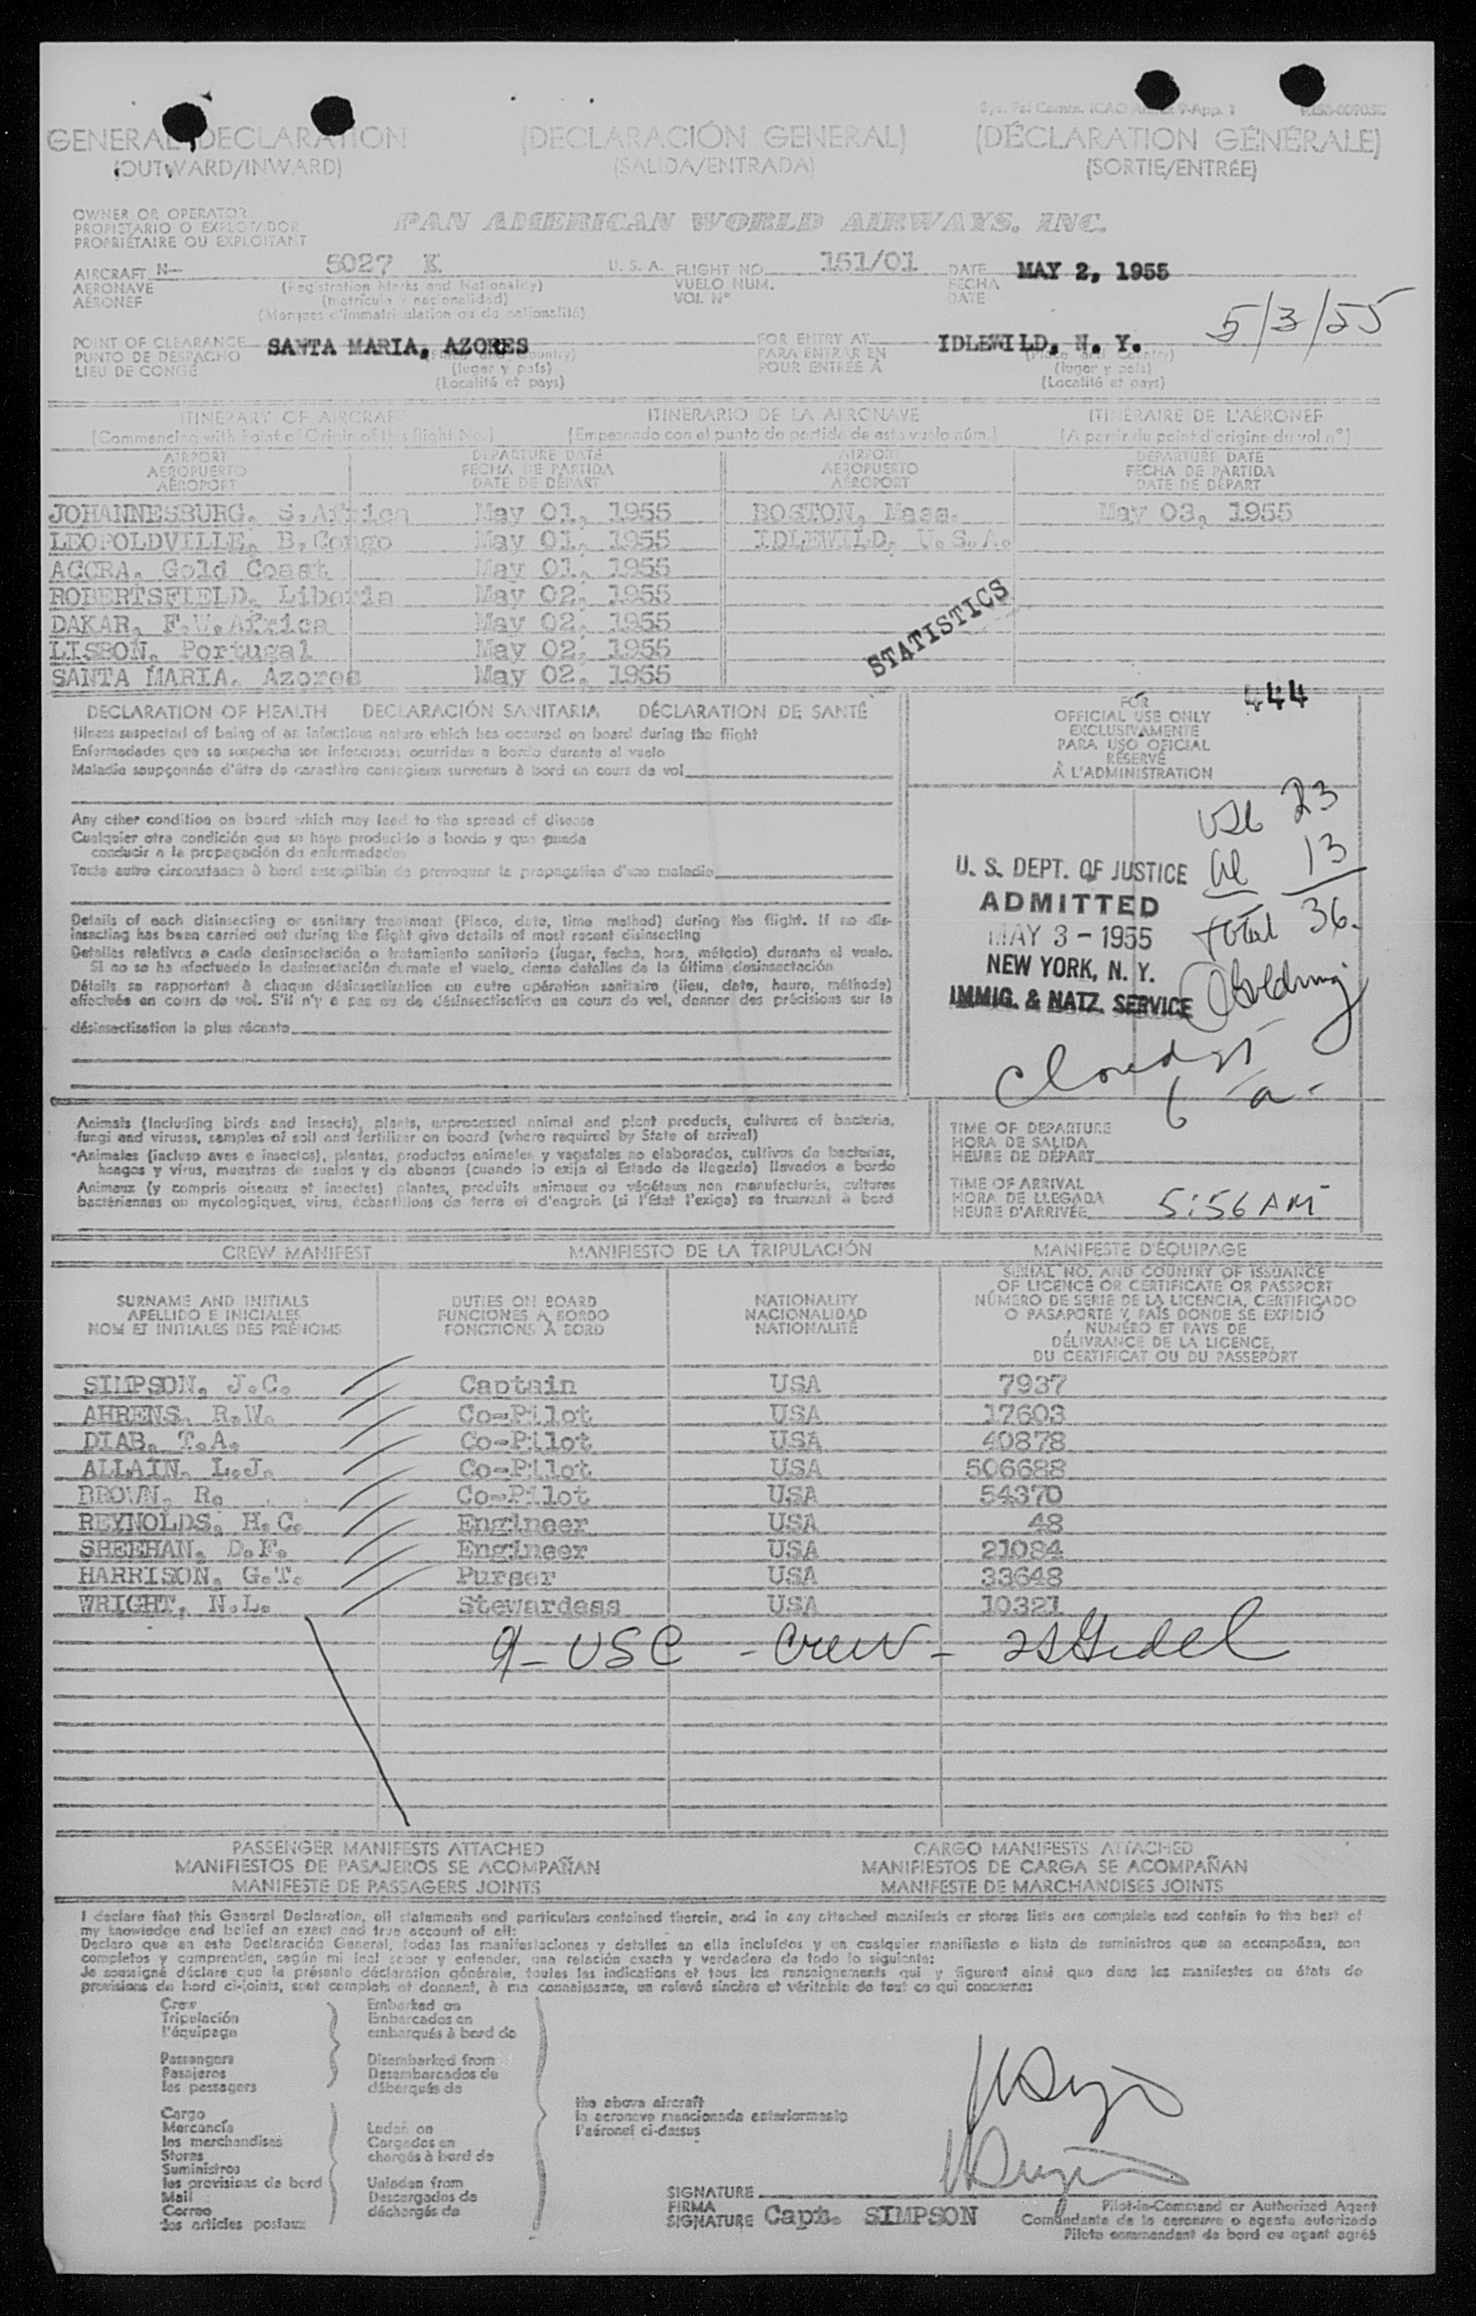 GENERAL DECLARATION (DECLARACIÓN GENERAL) (DÉCLARATION GÉNÉRALE)
(OUTWARD/INWARD) (SALIDA/ENTRADA) (SORTIE/ENTRÉE)
OWNER OR OPERATOR
PROPIETARIO O EXPLOTADOR
PROPRIÉTAIRE OU EXPLOITANT
PAN AMERICAN WORLD AIRWAYS, INC.
AIRCRAFT N- 5027 K U. S. A. FLIGHT NO. 151/01 DATE MAY 2, 1955
AERONAVE (Registration Marks and Nationality) VUELO NUM. FECHA
AÉRONEF (matrícula y nacionalidad) VOL Nº DATE
(Marques d'immatriculation ou de nationalité)
5/3/55
POINT OF CLEARANCE SANTA MARIA, AZORES FOR ENTRY AT IDLEWILD, N. Y.
PUNTO DE DESPACHO PARA ENTRAR EN (Place and Country)
LIEU DE CONGÉ (lugar y país) POUR ENTRÉE À (lugar y país)
(Localité et pays) (Localité et pays)
ITINERARY OF AIRCRAFT ITINERARIO DE LA AERONAVE ITINÉRAIRE DE L'AÉRONEF
(Commencing with Point of Origin of this flight No.) (Empezando con el punto de partida de este vuelo núm.) (A partir du point d'origine du vol nº)
AIRPORT DEPARTURE DATE AIRPORT DEPARTURE DATE
AEROPUERTO FECHA DE PARTIDA AEROPUERTO FECHA DE PARTIDA
AÉROPORT DATE DE DÉPART AÉROPORT DATE DE DÉPART
JOHANNESBURG, S.Africa May 01, 1955 BOSTON, Mass. May 03, 1955
LEOPOLDVILLE, B.Congo May 01, 1955 IDLEWILD, U.S.A.
ACCRA, Gold Coast May 01, 1955
ROBERTSFIELD, Liberia May 02, 1955
DAKAR, F.W.Africa May 02, 1955
LISBON, Portugal May 02, 1955
SANTA MARIA, Azores May 02, 1955
STATISTICS
DECLARATION OF HEALTH DECLARACIÓN SANITARIA DÉCLARATION DE SANTÉ
Illness suspected of being of an infectious nature which has occured on board during the flight
Enfermedades que se sospecha son infecciosas ocurridas a bordo durante el vuelo
Maladie soupçonnée d'être de caractère contagieux survenue à bord en cours de vol
Any other condition on board which may lead to the spread of disease
Cualquier otra condición que se haya producido a bordo y que pueda
conducir a la propagación de enfermedades
Toute autre circonstance à bord susceptible de provoquer la propagation d'une maladie
Details of each disinsecting or sanitary treatment (Place, date, time method) during the flight. If no dis-
insecting has been carried out during the flight give details of most recent disinsecting
Detalles relativos a cada desinsectación o tratamiento sanitario (lugar, fecha, hora, método) durante el vuelo.
Si no se ha efectuado la desinsectación durante el vuelo, dense detalles de la última desinsectación
Détails se rapportant à chaque désinsectisation ou autre opération sanitaire (lieu, date, heure, méthode)
effectuée en cours de vol. S'il n'y a pas eu de désinsectisation en cours de vol, donner des précisions sur la
désinsectisation la plus récente
FOR 444
OFFICIAL USE ONLY
EXCLUSIVAMENTE
PARA USO OFICIAL
RÉSERVÉ
À L'ADMINISTRATION
USC 23
U. S. DEPT. OF JUSTICE al 13
ADMITTED total 36.
MAY 3 - 1955
NEW YORK, N. Y.
IMMIG. & NATZ. SERVICE
6 a-
Animals (including birds and insects), plants, unprocessed animal and plant products, cultures of bacteria,
fungi and viruses, samples of soil and fertilizer on board (where required by State of arrival)
Animales (incluso aves e insectos), plantas, productos animales y vegetales no elaborados, cultivos de bacterias,
hongos y virus, muestras de suelos y de abonos (cuando lo exija el Estado de llegada) llevados a bordo
Animaux (y compris oiseaux et insectes) plantes, produits animaux ou végétaux non manufacturés, cultures
bactériennes ou mycologiques, virus, échantillons de terre et d'engrais (si l'État l'exige) se trouvant à bord
TIME OF DEPARTURE
HORA DE SALIDA
HEURE DE DÉPART
TIME OF ARRIVAL
HORA DE LLEGADA
HEURE D'ARRIVÉE 5:56 AM
CREW MANIFEST MANIFIESTO DE LA TRIPULACIÓN MANIFESTE D'ÉQUIPAGE
SURNAME AND INITIALS
APELLIDO E INICIALES
NOM ET INITIALES DES PRÉNOMS
DUTIES ON BOARD
FUNCIONES A BORDO
FONCTIONS À BORD
NATIONALITY
NACIONALIDAD
NATIONALITÉ
SERIAL NO. AND COUNTRY OF ISSUANCE
OF LICENCE OR CERTIFICATE OR PASSPORT
NÚMERO DE SERIE DE LA LICENCIA, CERTIFICADO
O PASAPORTE Y PAÍS DONDE SE EXPIDIÓ
NUMÉRO ET PAYS DE
DÉLIVRANCE DE LA LICENCE,
DU CERTIFICAT OU DU PASSEPORT
SIMPSON, J.C. Captain USA 7937
AHRENS, R.W. Co-Pilot USA 17603
DIAB, T.A. Co-Pilot USA 40878
ALLAIN, L.J. Co-Pilot USA 506688
BROWN, R. Co-Pilot USA 54370
REYNOLDS, H.C. Engineer USA 48
SHEEHAN, D.F. Engineer USA 21084
HARRISON, G.T. Purser USA 33648
WRIGHT, N.L. Stewardess USA 10321
9 - USC - Crew -
PASSENGER MANIFESTS ATTACHED CARGO MANIFESTS ATTACHED
MANIFIESTOS DE PASAJEROS SE ACOMPAÑAN MANIFIESTOS DE CARGA SE ACOMPAÑAN
MANIFESTE DE PASSAGERS JOINTS MANIFESTE DE MARCHANDISES JOINTS
I declare that this General Declaration, all statements and particulars contained therein, and in any attached manifests or stores lists are complete and contain to the best of
my knowledge and belief an exact and true account of all:
Declaro que en esta Declaración General, todas las manifestaciones y detalles en ella incluídos y en cualquier manifiesto o lista de suministros que se acompañan, son
completos y comprenden, según mi leal saber y entender, una relación exacta y verdadera de todo lo siguiente:
Je soussigné déclare que la présente déclaration générale, toutes les indications et tous les renseignements qui y figurent ainsi que dans les manifestes ou états de
provisions de bord ci-joints, sont complets et donnent, à ma connaissance, un relevé sincère et véritable de tout ce qui concerne:
Crew Embarked on
Tripulación Embarcados en
l'équipage embarqués à bord de
Passengers Disembarked from
Pasajeros Desembarcados de
les passagers débarqués de
Cargo
Mercancía Laden on
les marchandises Cargados en
Stores chargés à bord de
Suministros
les provisions de bord Unladen from
Mail Descargados de
Correo déchargés de
les articles postaux
the above aircraft
la aeronave mencionada anteriormente
l'aéronef ci-dessus
SIGNATURE
FIRMA
SIGNATURE Capt. SIMPSON
Pilot-in-Command or Authorized Agent
Comandante de la aeronave o agente autorizado
Pilote commandant de bord ou agent agréé